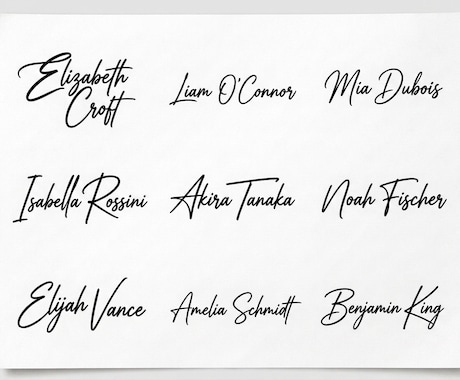 Elizabeth
Croft
Liam O'Connor
Mia Dubois
Isabella Rossini
Akira Tanaka
Noah Fischer
Elijah Vance
Amelia Schmidt
Benjamin King